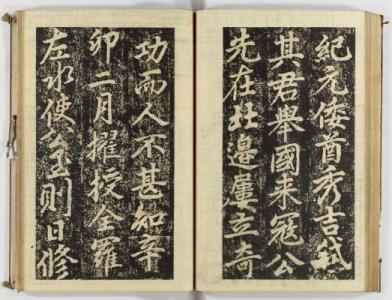 紀元倭酋秀吉弑
其君舉國來寇公
先在北邊屢立奇
功而人不甚知辛
卯二月擢授全羅
左水使公至則日脩